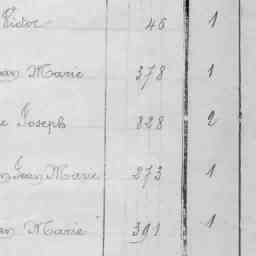 Victor 46 1
an Marie 378 1
e Joseph 828 2
n Jean Marie 273 1
an Marie 391 1